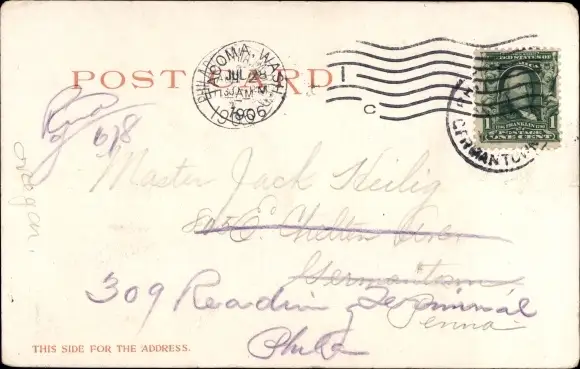 POST CARD
TACOMA, WASH.
JUL 28
AM
1906
C
GERMANTOWN
FRANKLIN
1 1
POSTAGE
ONE CENT
618
Oregon.
Master Jack Heilig
E. Chelten Ave.
Germantown
309 Reading Terminal
Penna
Phila
THIS SIDE FOR THE ADDRESS.